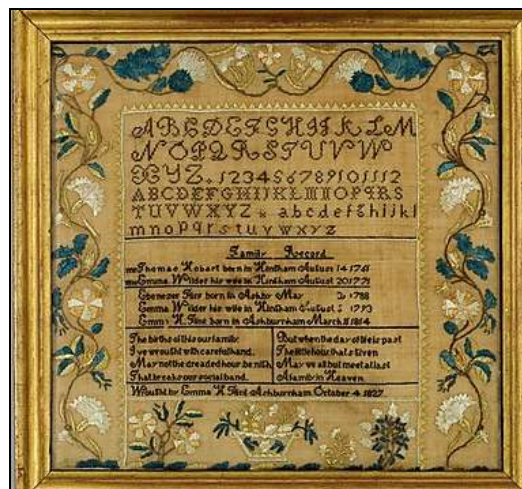 ABCDEFGHIJKLM
NOPQRSTUVW
XYZ. 123456789101112
ABCDEFGHIJKLMNOPQRS
TUVWXYZ abcdefghijkl
mnopqrstuvwxyz
Family Record
Mr Thomas Hobart born in Hindham August 14 1761
Emma Wilder his wife in Hindham August 20 1771
Ebenezer Flint born in Ashby May 1788
Emma Wilder his wife in Hindham August 1793
Emma H Flint born in Ashburnham March 11 1814
The births of this our family
I've wrought with careful hand.
May not the dreaded hour be nigh
That breaks our social band.
But when the day of life is past
The little hour that's given
May we all but meet at last
A family in Heaven
Wrought by Emma H Flint Ashburnham October 4 1827